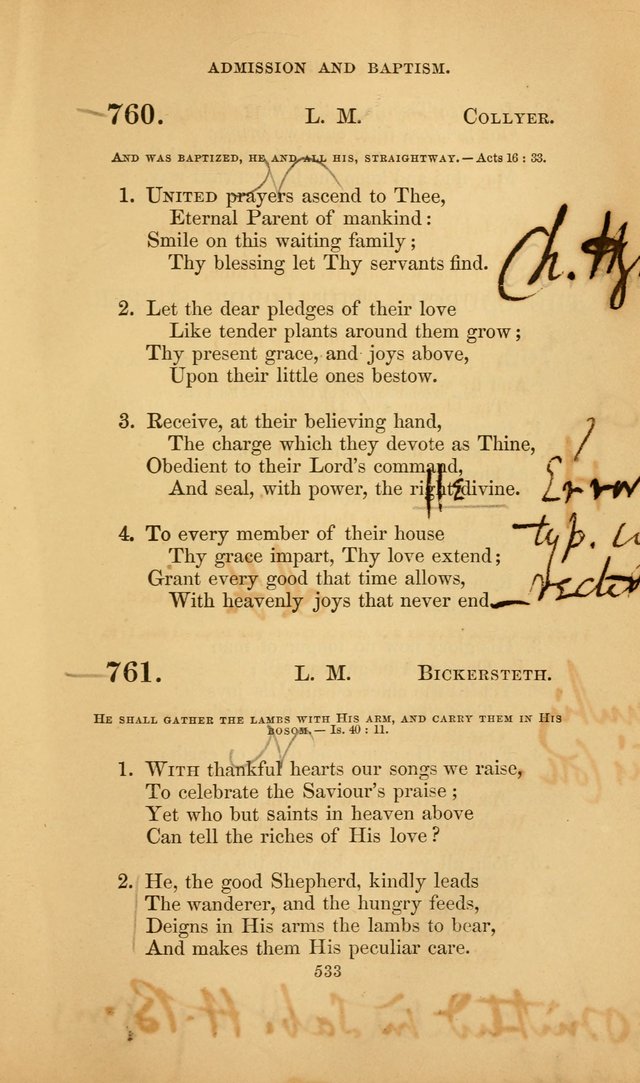 ADMISSION AND BAPTISM.
760. L. M. COLLYER.
AND WAS BAPTIZED, HE AND ALL HIS, STRAIGHTWAY.—Acts 16 : 33.
1. UNITED prayers ascend to Thee,
Eternal Parent of mankind:
Smile on this waiting family;
Thy blessing let Thy servants find.
Ch. Hy
2. Let the dear pledges of their love
Like tender plants around them grow;
Thy present grace, and joys above,
Upon their little ones bestow.
3. Receive, at their believing hand,
The charge which they devote as Thine,
Obedient to their Lord's command,
And seal, with power, the right divine.
Error
typ.
4. To every member of their house
Thy grace impart, Thy love extend;
Grant every good that time allows,
With heavenly joys that never end.
761. L. M. BICKERSTETH.
HE SHALL GATHER THE LAMBS WITH HIS ARM, AND CARRY THEM IN HIS
BOSOM.—Is. 40 : 11.
1. WITH thankful hearts our songs we raise,
To celebrate the Saviour's praise;
Yet who but saints in heaven above
Can tell the riches of His love?
2. He, the good Shepherd, kindly leads
The wanderer, and the hungry feeds,
Deigns in His arms the lambs to bear,
And makes them His peculiar care.
533